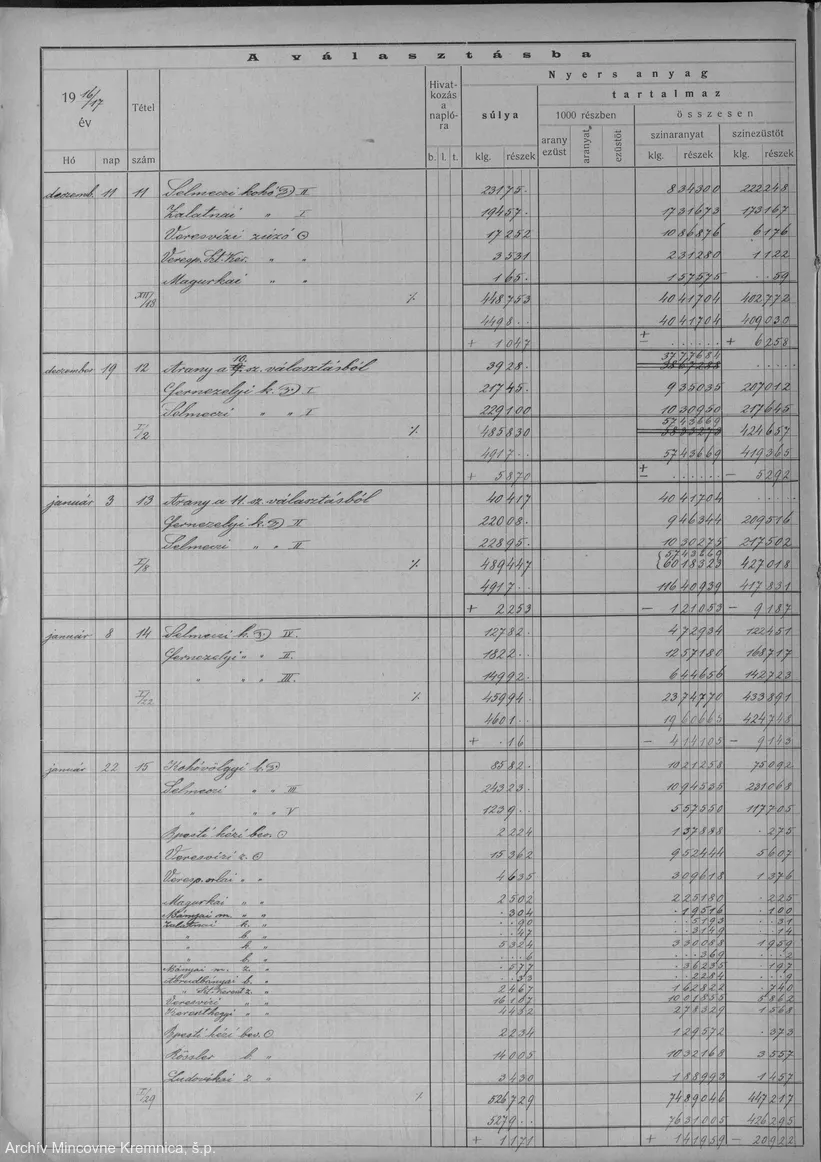 A választásba
1916/17 év Tétel szám Hivatkozás a naplóra Nyers anyag
súlya tartalmaz
1000 részben összesen
arany ezüst aranyat ezüstöt színaranyat színezüstöt
Hó nap b. l. t. klg. részek klg. részek klg. részek
dezemb. 11 11 Selmeczi kohó II 23175. 834300 222248
Zalatnai " I 19457. 1731673 173167
Veresvizi zúzó 17252 1086876 6176
Veresp. Szt. Ker. " " 3531 231280 1122
Magurkai " " 165. 157575 . . 59
XII/18 % 448753 4041704 402772
4498 . . 4041704 409030
+ 1047 ± . . . . . . + 6258
3777684
dezember 19 12 Arany a 10. sz. választásból 3928. 3867288 . . . . .
Fernezelyi k. I 21745. 935035 207012
Selmeczi " " I 229100 1030950 217645
5743669
I/2 % 485830 5833273 424657
4917 . . 5743669 419365
+ 5870 ± . . . . . . - 5292
január 3 13 Arany a 11. sz. választásból 40417 4041704 . . . . .
Fernezelyi k. II 22008. 946344 209516
Selmeczi " " II 22895. 1030275 217502
5743669
I/8 % 489447 6018323 427018
4917 . . 11640939 417831
+ 2253 - 121053 - 9187
január 8 14 Selmeczi k. IV. 12782. 472934 122451
Fernezelyi " " II. 1822 . . 1257180 168717
" " " III. 14992. 644656 142723
I/22 % 45994. 2374770 433891
4601 . . 1960665 424748
+ . 16 - 414105 - 9143
január 22 15 Kohóvölgyi k. 8582. 1021258 75092
Selmeczi " " III 24323. 1094535 231068
" " " V 1239 . . 557550 117705
Bpesti kézi bev. 2224 137888 . 275
Veresvizi z. 15362 952444 5607
Veresp. orlai " " 4635 309618 1376
Magurkai " " 2502 225180 . 225
Bányai m. " " . 304 . 19516 . 100
Zalatnai k. " . . 30 . . 5193 . . 31
" b. " . . 47 . . 3149 . . 14
" k. " 5324 330088 1959
" b. " . . . 6 . . . 369 . . . 2
Bányai m. z. " . 577 . 36235 . 197
Abrudbányai b. " . . 33 . . 2284 . . . 9
" Szt. Kereszt z. " 2467 162822 . 740
Veresvizi " " 16107 1001855 5862
Kereszthegyi " " 4452 278329 1568
Bpesti kézi bev. 2234 129572 . 373
Rössler b. " 14005 1032168 3557
Ludovikai z " 3430 188993 1457
I/29 % 526729 7489046 447217
5279 . . 7631005 426295
+ 1171 + 141959 - 20922
Archív Mincovne Kremnica, š.p.